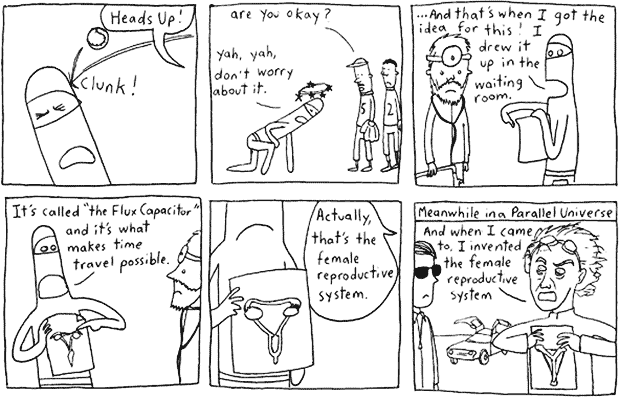 Heads Up!
Clunk!
are you okay?
yah, yah,
don't worry
about it.
5
2
...And that's when I got the
idea for this! I
drew it
up in the
waiting
room.
It's called "the Flux Capacitor"
and it's what
makes time
travel possible.
Actually,
that's the
female
reproductive
system.
Meanwhile in a Parallel Universe
And when I came
to, I invented
the female
reproductive
system